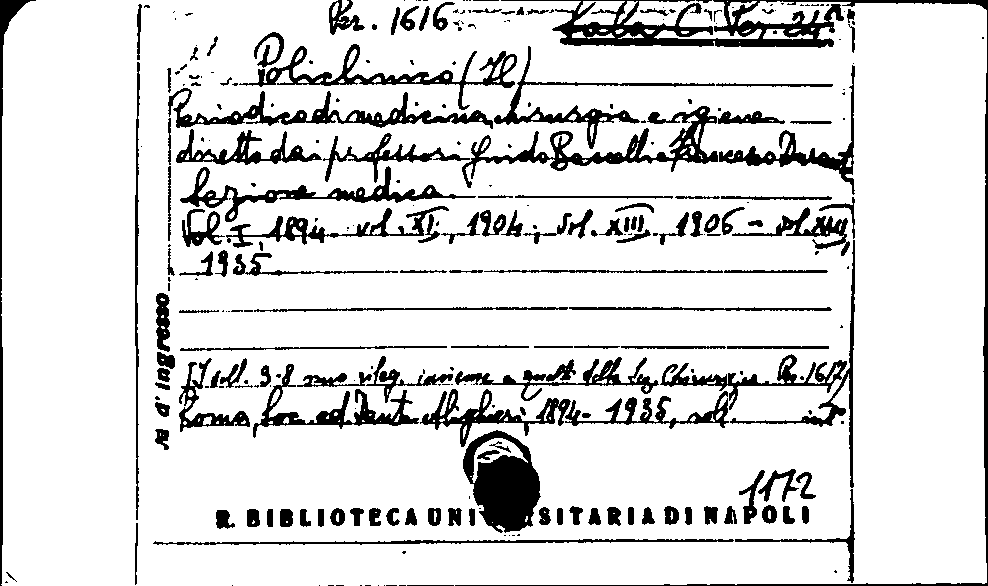 Per. 1616. Sala C Per. 24
Policlinico (Il)
Periodico di medicina, chirurgia e igiene
diretto dai professori Guido Baccelli e Francesco Durante
Sezione medica.
Vol. I, 1894 - vol. XI, 1904; vol. XIII, 1906 - vol. XLII,
1935.
[I voll. 3-8 sono rileg. insieme a quelli della Sez. Chirurgica. Per. 1617]
Roma, Soc. ed. Dante Alighieri, 1894 - 1935, voll. in 8°.
N. d'ingresso
1172
R. BIBLIOTECA UNIVERSITARIA DI NAPOLI